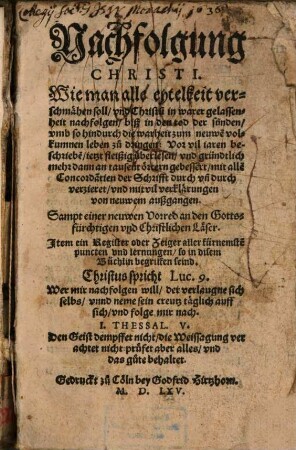 Nachfolgung
CHRISTI.
Wie man alle eytelkeit ver-
schmähen soll/ vnd Christū in warer gelassen-
heit nachfolgen/ biß in den tod der sünden/
vnnd so hindurch die warheit zum neuwē vol-
kumnen leben zů dringen: Vor vil iaren be-
schribē/ ietzt fleißig überlesen/ vnd gründtlich
mehr dann an tausent örtern gebesserr/ mit allē
Concordātien der Schrifft durch vn̄ durch
verzieret/ vnd mit vil verklärungen
von neuwem außgangen.
Sampt einer neuwen Vorred an den Gottes-
förchtigen vn̄d Christlichen Läser.
Item ein Register oder Zeiger aller fürnemstē
puncten vnd lernungen/ so in disem
Büchlin begriffen seind.
Christus spricht Luc. 9.
Wer mir nachfolgen will/ det verlaugne sich
selbs/ vnnd neme sein creutz täglich auff
sich/ vnd folge mir nach.
I. THESSAL. V.
Den Geist dempffet nicht/ die Weissagung ver
achtet nicht prüfet aber alles/ vnd
das gůte behaltet.
Gedruckt zů Cöln bey Godfrid Hirtzhorn.
M. D. LXV.